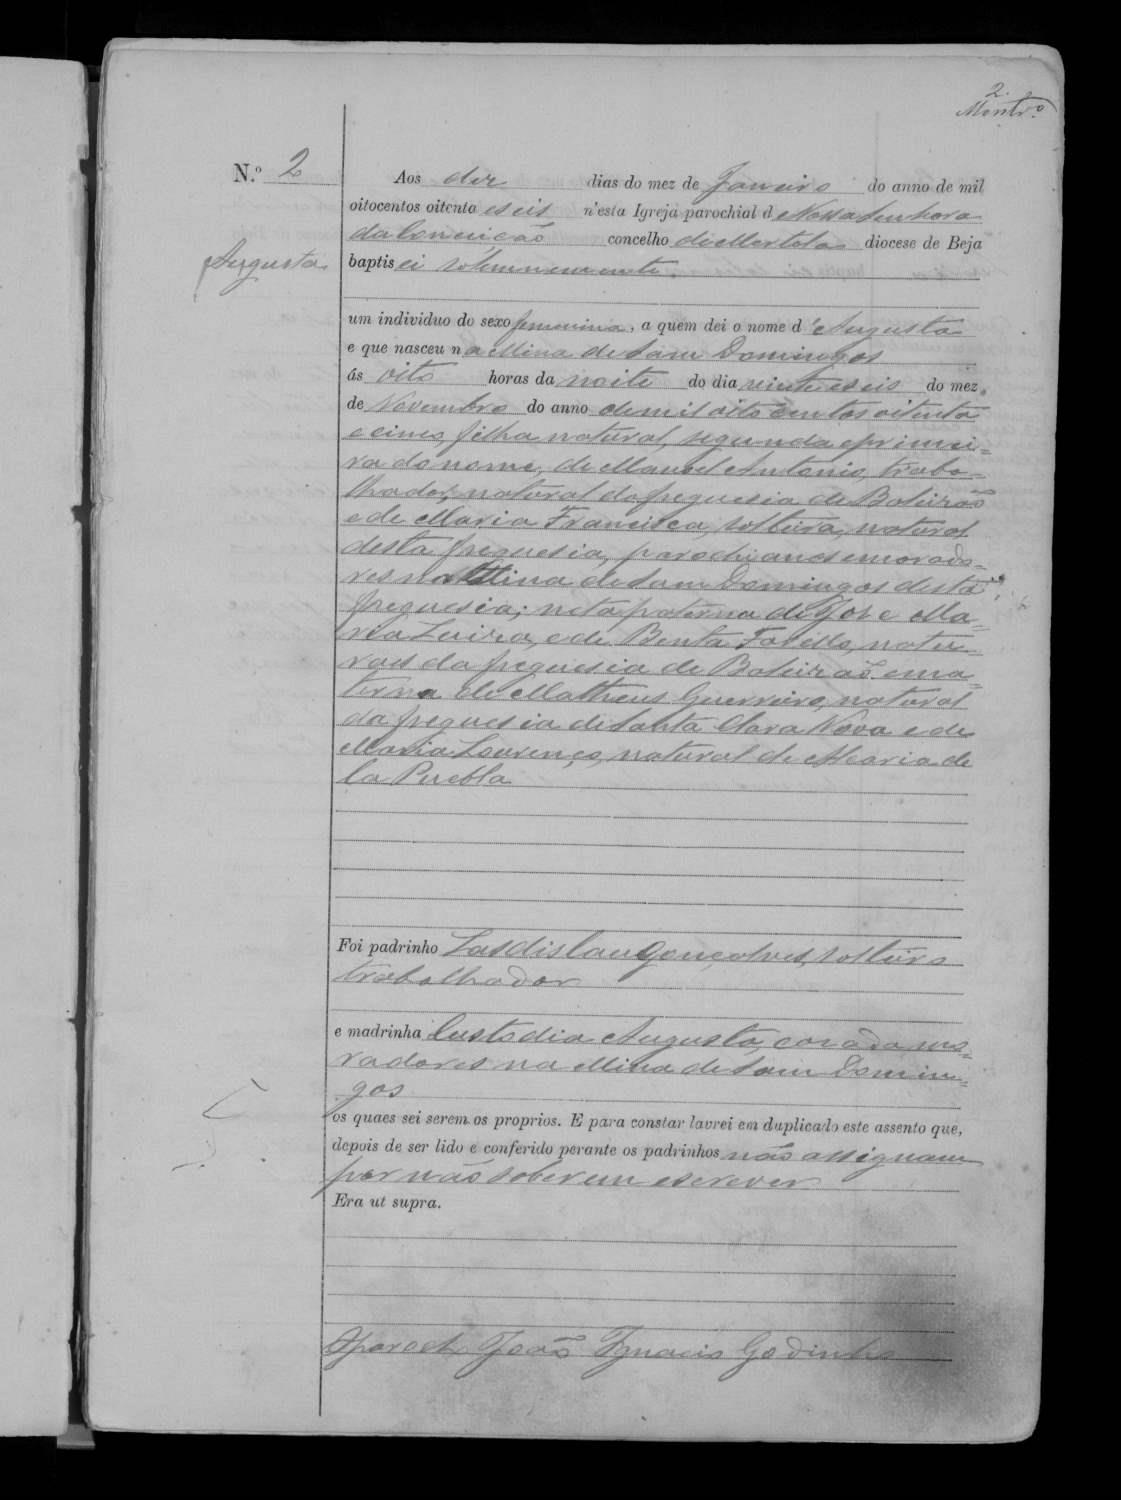 2.
N.º 2
Augusta
Aos dez dias do mez de Janeiro do anno de mil
oitocentos oitenta e seis n'esta Igreja parochial d Nossa Senhora
da Conceição concelho de Mertola diocese de Beja
baptisei solemnemente
um individuo do sexo femenino, a quem dei o nome d'Augusta
e que nasceu na Mina de Sam Domingos
ás oito horas da noite do dia vinte e seis do mez
de Novembro do anno de mil oito centos oitenta
e cinco, filha natural, segunda e primei=
ra do nome, de Manoel Antonio, traba=
lhador, natural da freguesia de Boliqueime
e de Maria Francisca, solteira, natural
desta freguesia, parochianos e morado=
res na Mina de Sam Domingos desta
freguesia; neta paterna de José Ma=
ria Luiza, e de Benta natu=
raes da freguesia de e ma=
terna de Matheus Guerreiro, natural
da freguesia de Santa Clara Nova e de
Maria Lourenço, natural de Alearia de
la Puebla
Foi padrinho Lasdislau Gonçalves, solteiro
trabalhador
e madrinha Custodia Augusta, casada mo=
radores na Mina de Sam Domin=
gos
os quaes sei serem os proprios. E para constar lavrei em duplicado este assento que,
depois de ser lido e conferido perante os padrinhos não assignam
por não saberem escrever
Era ut supra.
O paroch João Ignacio Godinho